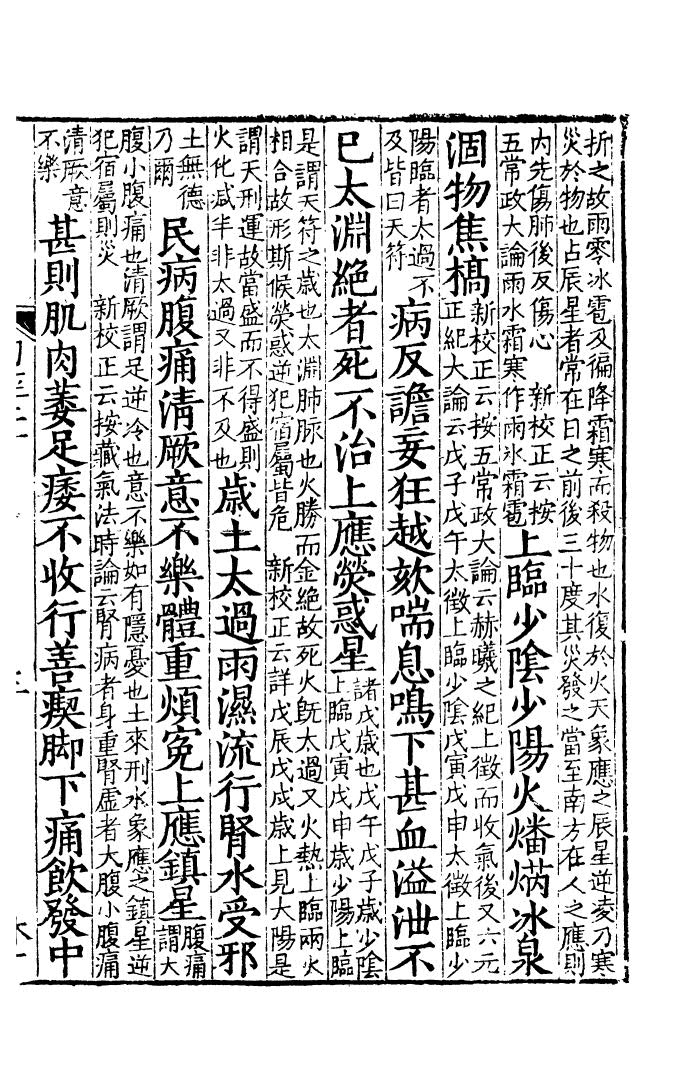 折之故雨零冰雹及徧降霜寒而殺物也水復於火天象應之辰星逆凌乃寒
災於物也占辰星者常在日之前後三十度其災發之當至南方在人之應則
内先傷肺後反傷心　新校正云按
五常政大論雨水霜寒作雨氷霜雹
上臨少陰少陽火燔焫冰泉
涸物焦槁
新校正云按五常政大論云赫曦之紀上徵而收氣後又六元
正紀大論云戊子戊午太徵上臨少陰戊寅戊申太徵上臨少
陽臨者太過不
及皆曰天符
病反譫妄狂越欬喘息鳴下甚血溢泄不
已太淵絕者死不治上應熒惑星
諸戊歲也戊午戊子歲少陰
上臨戊寅戊申歲少陽上臨
是謂天符之歲也太淵肺脉也火勝而金絕故死火旣太過又火熱上臨兩火
相合故形斯候熒惑逆犯宿屬皆危　新校正云詳戊辰戊戌歲上見太陽是
謂天刑運故當盛而不得盛則
火化減半非太過又非不及也
歲土太過雨濕流行腎水受邪
土無德
乃爾
民病腹痛清厥意不樂體重煩寃上應鎮星
腹痛
謂大
腹小腹痛也清厥謂足逆冷也意不樂如有隱憂也土來刑水象應之鎮星逆
犯宿屬則災　新校正云按藏氣法時論云腎病者身重腎虛者大腹小腹痛
清厥意
不樂
甚則肌肉萎足痿不收行善瘈脚下痛飲發中